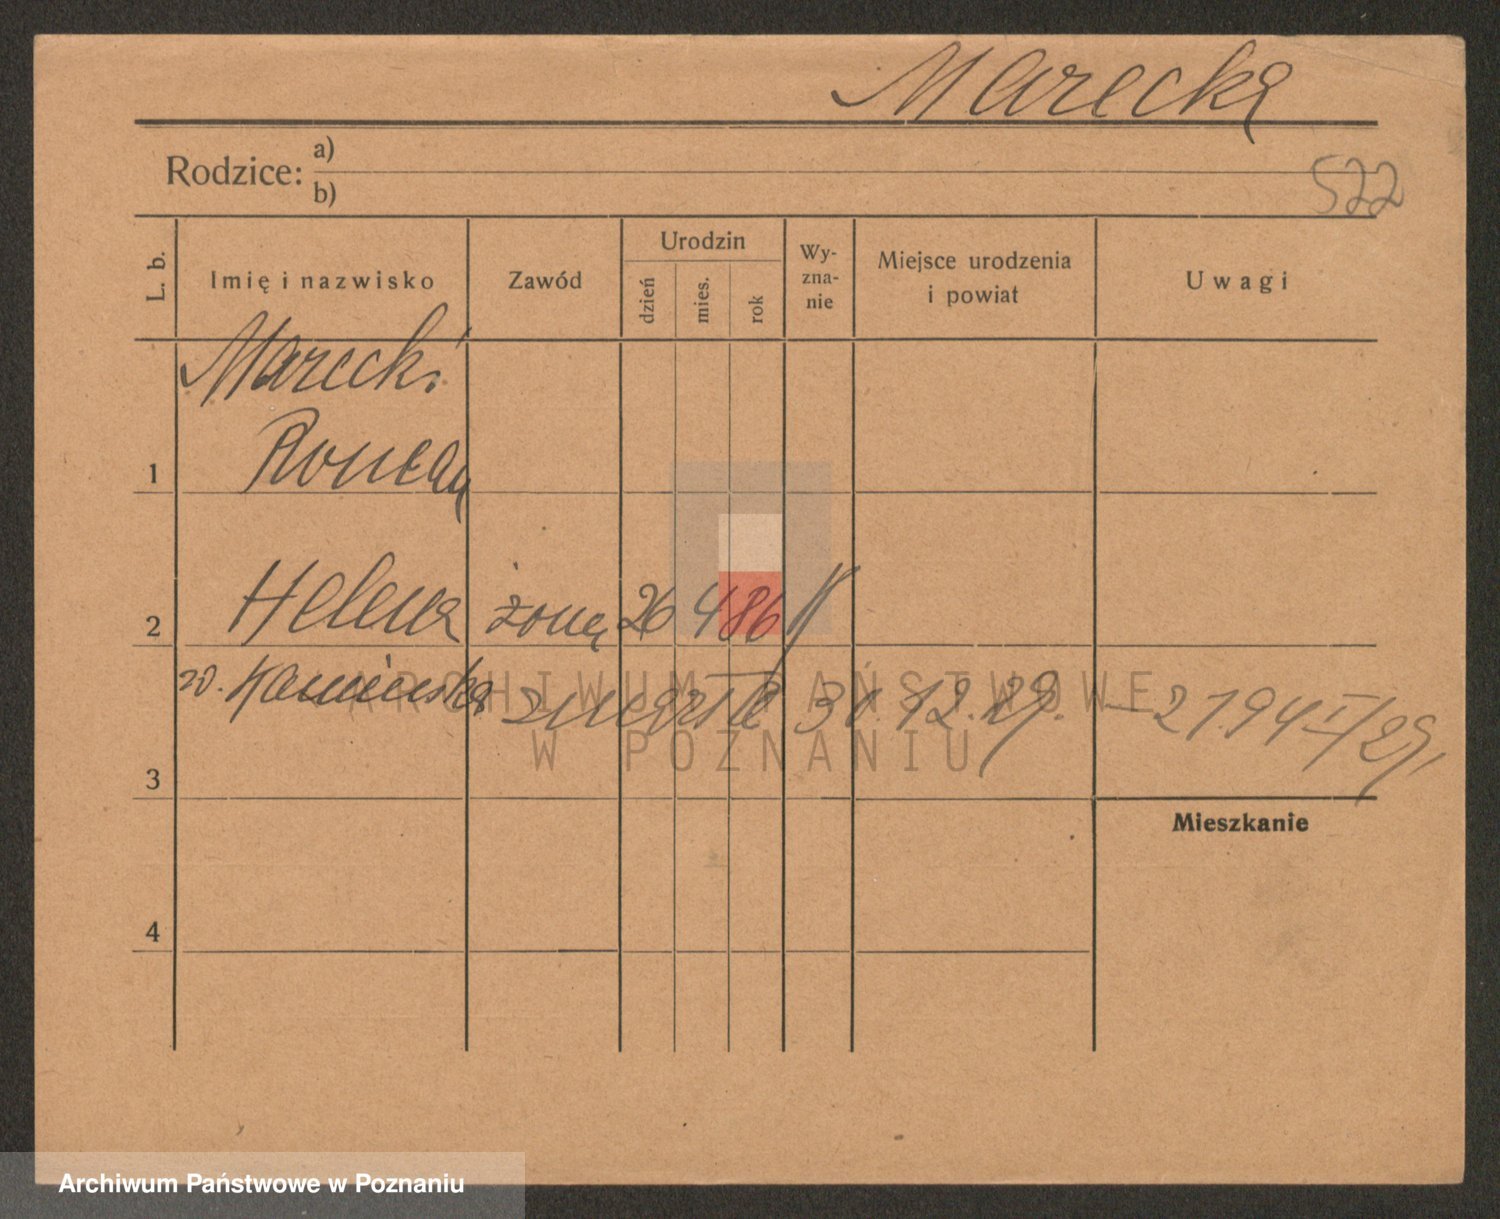 Marecka
Rodzice: a)
b)
522
L. b.
Imię i nazwisko
Zawód
Urodzin
dzień
mies.
rok
Wy-
zna-
nie
Miejsce urodzenia
i powiat
Uwagi
Marecki
1
Roman
2 Helena żona 26 4 86
zd. Kamieńska zmarła 31.12.29.
ARCHIWUM PAŃSTWOWE
W POZNANIU
3
Mieszkanie
4
Archiwum Państwowe w Poznaniu